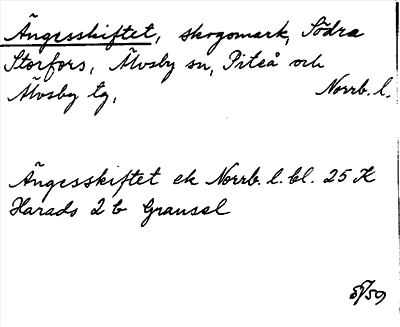 Ängesskiftet, skogsmark, Södra
Storfors, Älvsby sn, Piteå och
Älvsby tg, Norrb. l.
Ängesskiftet ek Norrb. l. bl. 25 K
Harads 2 b Gransel
5/59